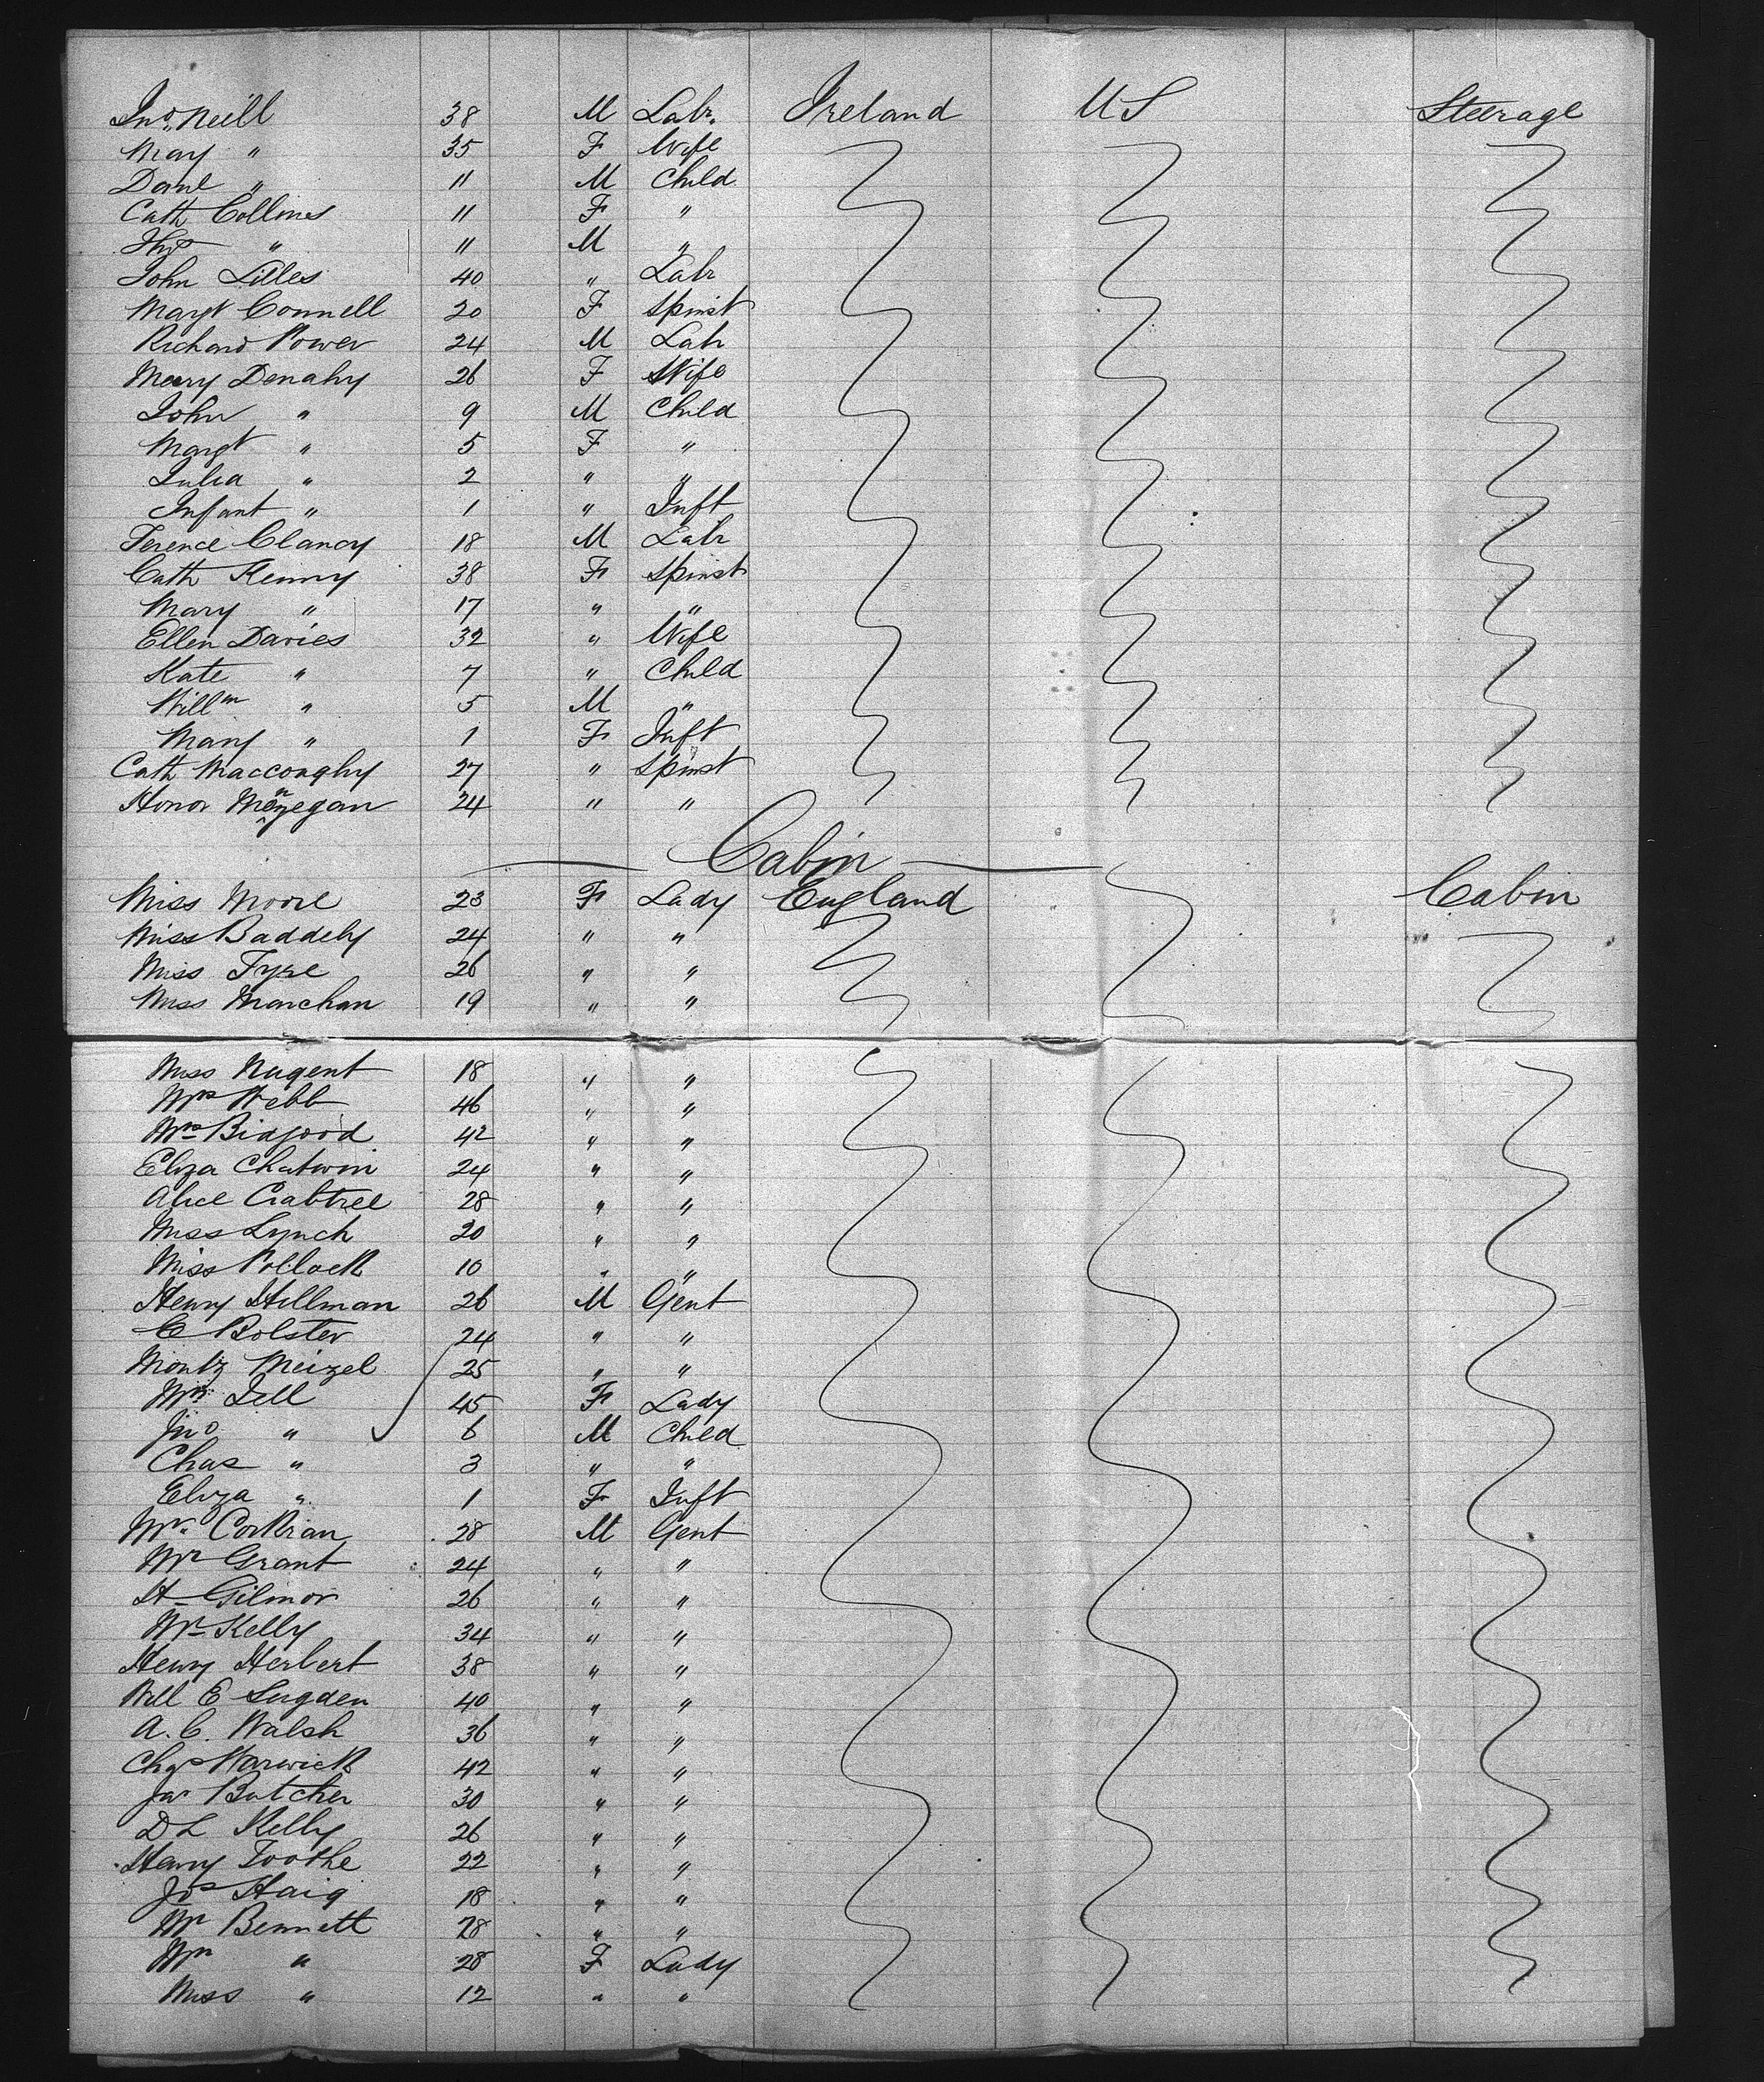 Jno. Neill 38 M Labr. Ireland US Steerage
Mary " 35 F Wife
Danl " 11 M Child
Cath Collins 11 F "
Thos " 11 M "
John Lilles 40 " Labr
Margt Connell 20 F Spinst
Richard Power 24 M Labr
Mary Denahy 26 F Wife
John " 9 M Child
Margt " 5 F "
Julia " 2 " "
Infant " 1 " Inft
Terence Clancy 18 M Labr
Cath Kenny 38 F Spinst
Mary " 17 " "
Ellen Davies 32 " Wife
Kate " 7 " Child
Willm " 5 M "
Mary " 1 F Inft
Cath Macconaghy 27 " Spinst
Honor 24 " "
Cabin
Miss Moore 23 F Lady England Cabin
Miss Baddely 24 " "
Miss Tyse 26 " "
Miss Marchan 19 " "
Miss Nugent 18 " "
Mrs Webb 46 " "
Mrs Bidgood 42 " "
Eliza Chatwin 24 " "
Alice Crabtree 28 " "
Miss Lynch 20 " "
Miss Pollock 10 " "
Henry Hillman 26 M Gent
E Bolster 24 " "
Moritz Meizel 25 " "
Mrs Lell 45 F Lady
Jno " 6 M Child
Chas " 3 " "
Eliza " 1 F Inft
Mr. Corkran 28 M Gent
Mr Grant 24 " "
Lt Gilmor 26 " "
Mr Kelly 34 " "
Henry Herbert 38 " "
Will E Sugden 40 " "
A. C. Walsh 36 " "
Chas Warwick 42 " "
Jas Butcher 30 " "
D L Kelly 26 " "
Henry Toothe 22 " "
Jos Haig 18 " "
Mr Bennett 28 " "
Mrs " 28 F Lady
Miss " 12 " "